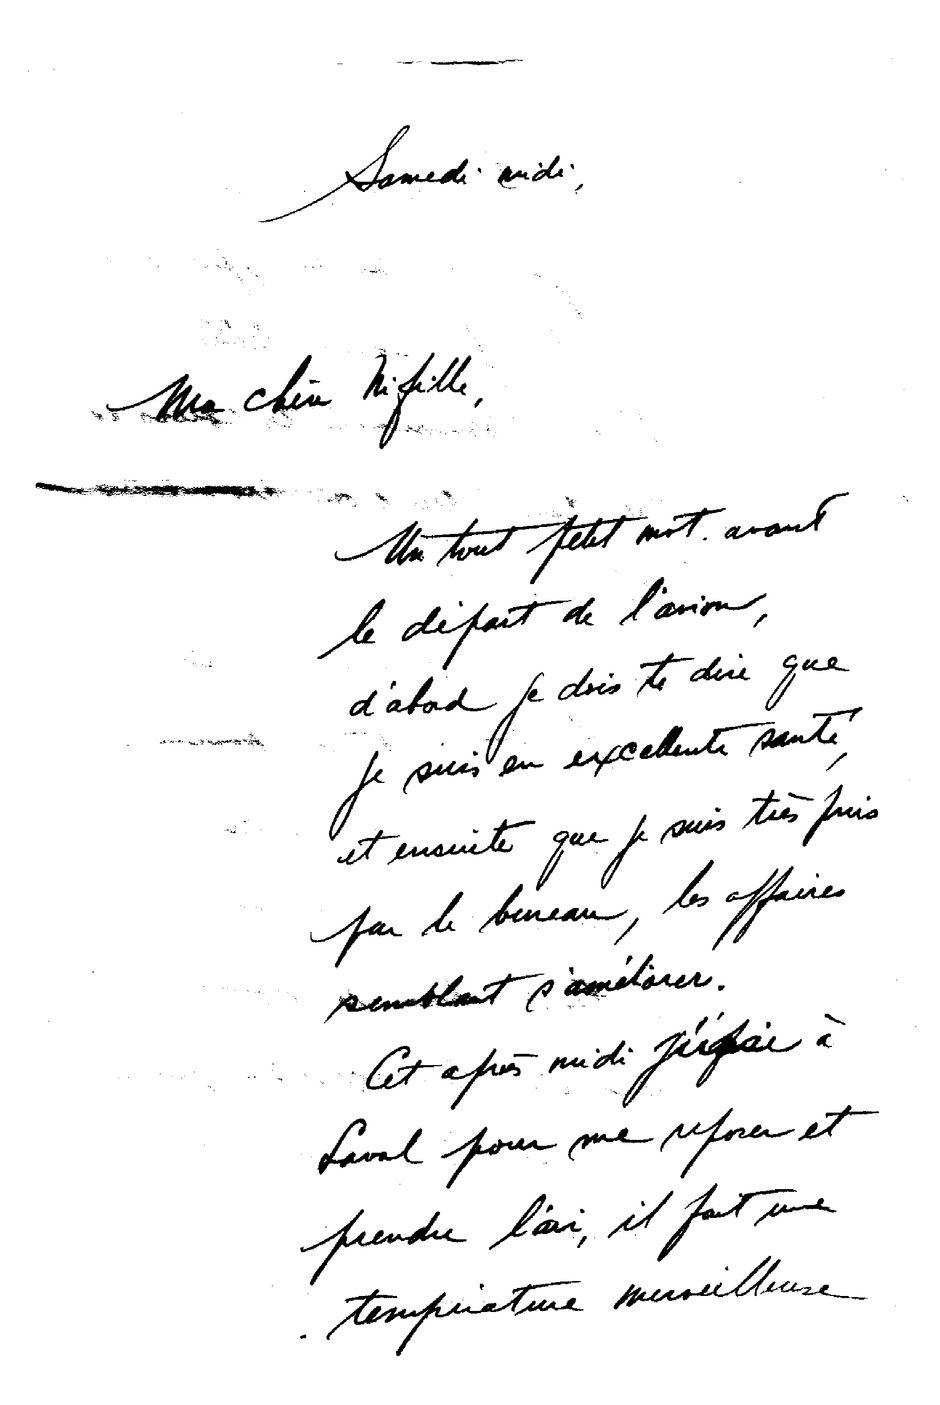 Samedi midi,
Ma chère Nifille,
Un tout petit mot avant
le départ de l'avion,
d'abord je dois te dire que
je suis en excellente santé,
et ensuite que je suis très pris
par le bureau, les affaires
semblant s'améliorer.
Cet après midi à
Laval pour me reposer et
prendre l'air, il fait une
température merveilleuse